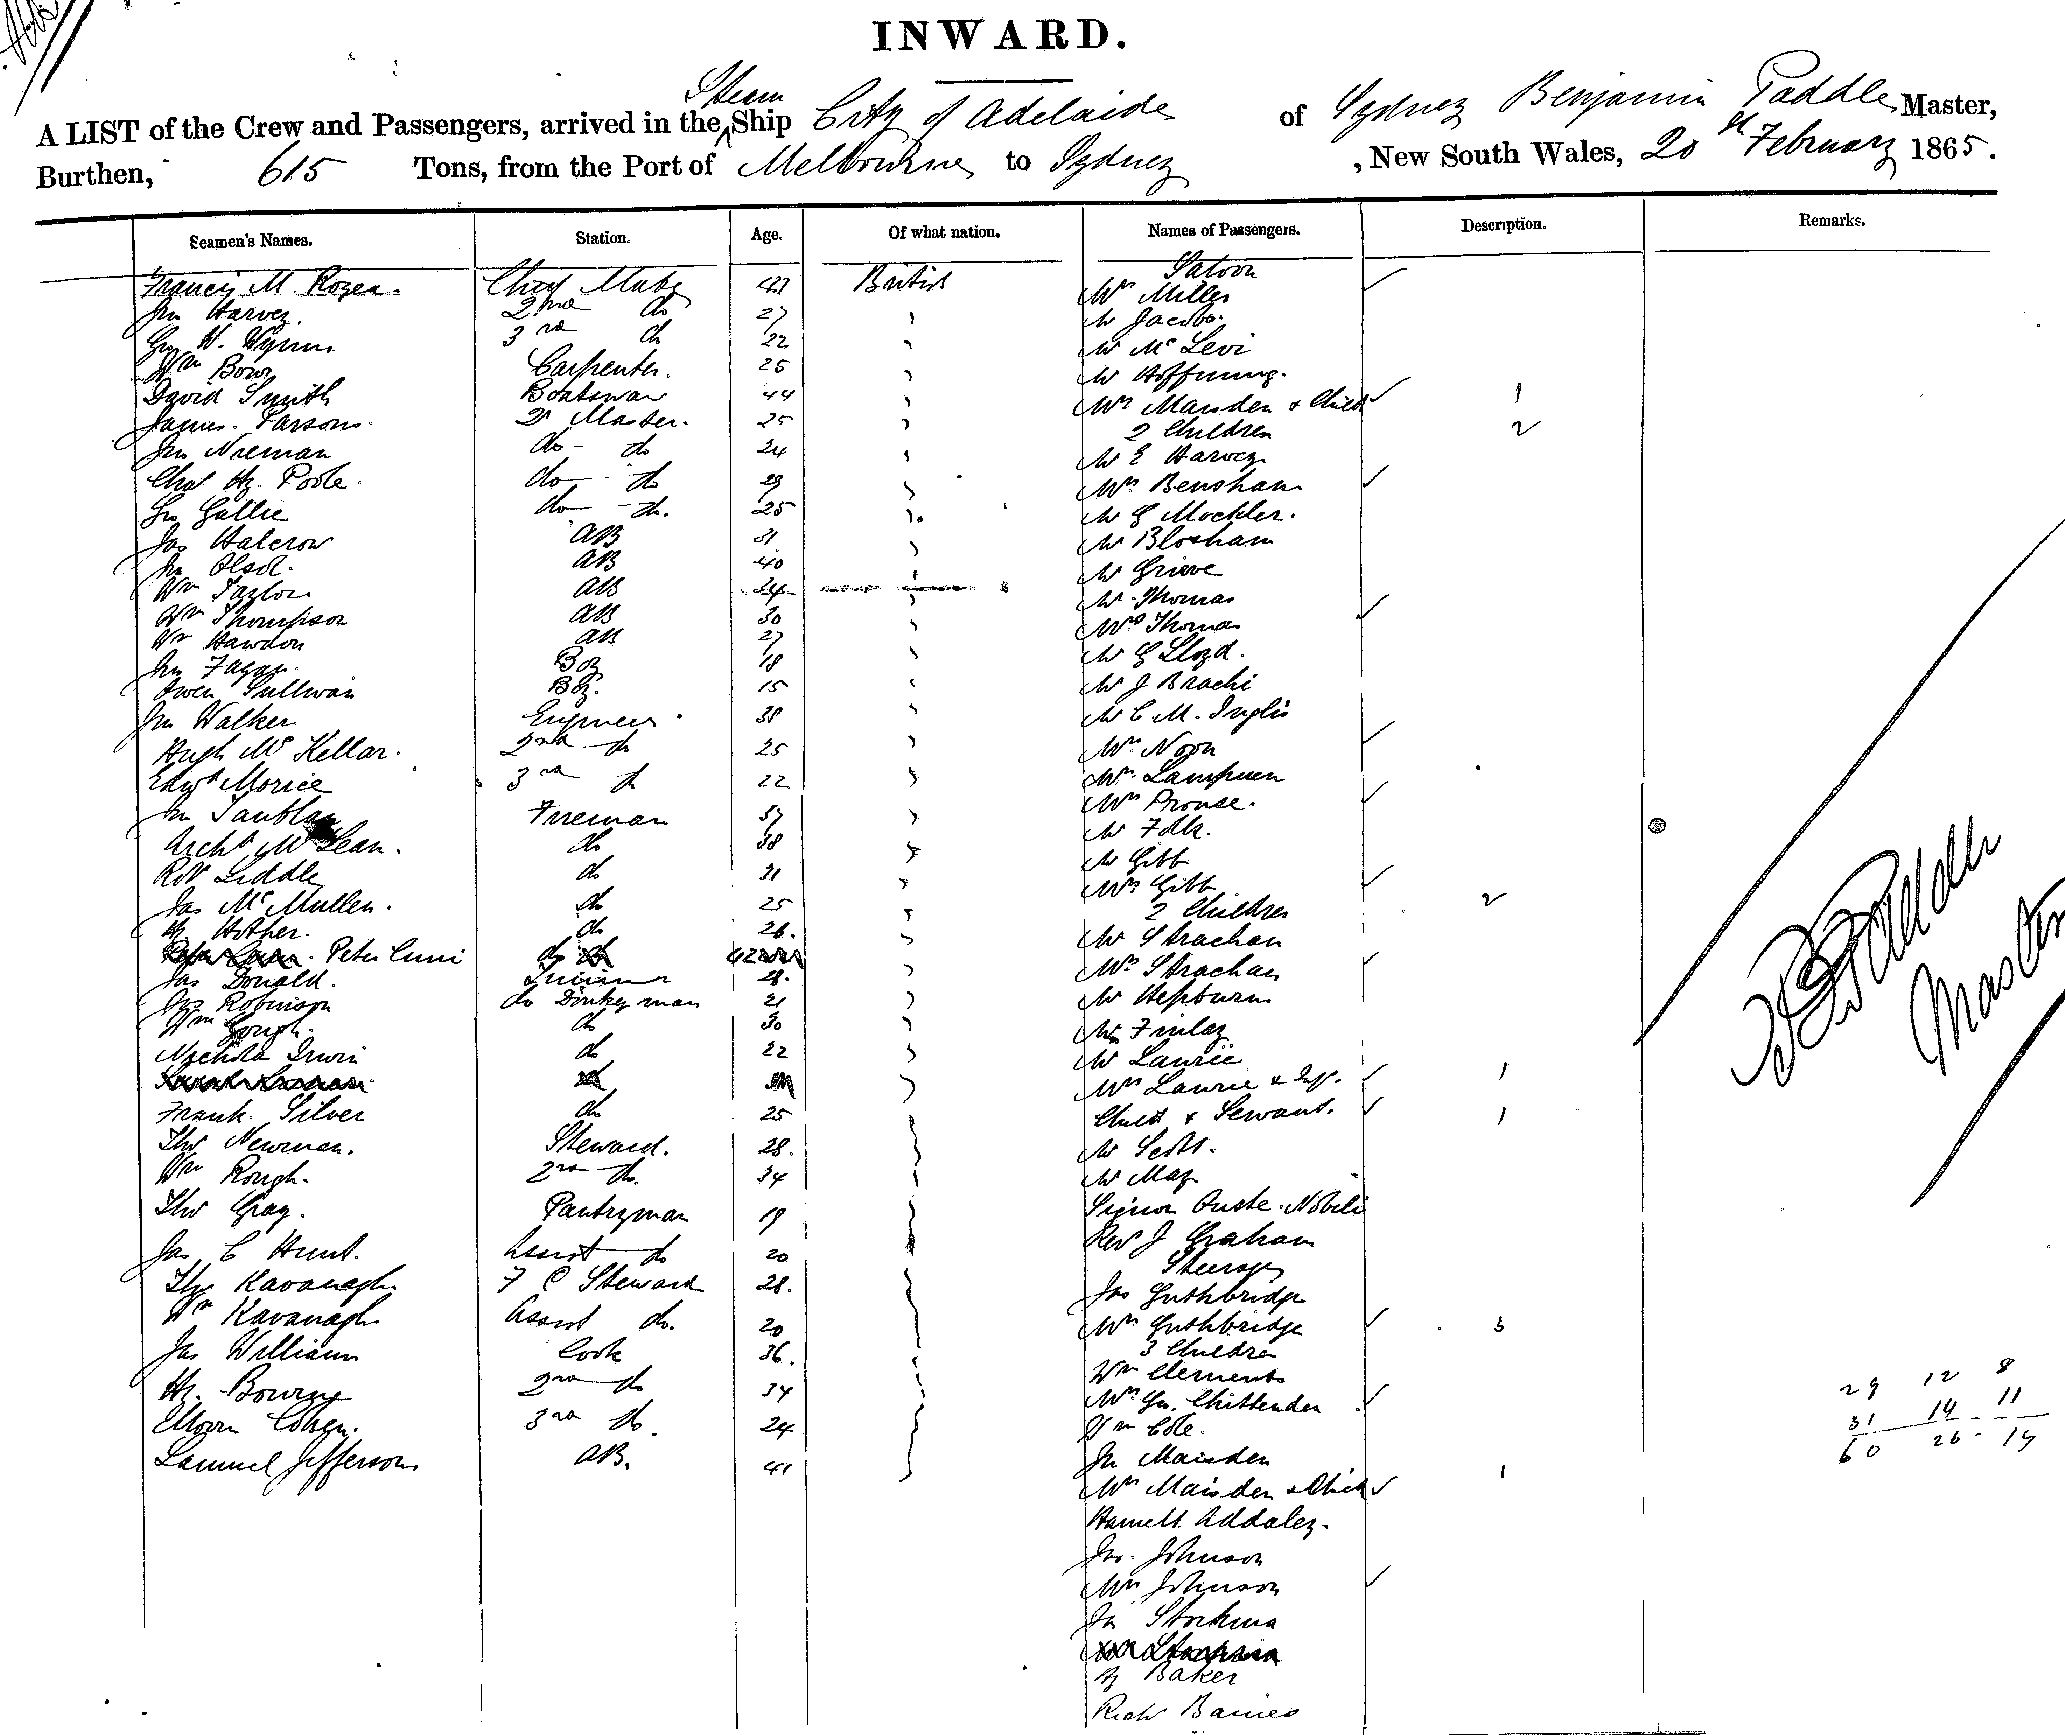 INWARD.
Steam
A LIST of the Crew and Passengers, arrived in the Ship City of Adelaide of Sydney Benjamin Paddle Master,
Burthen, 615 Tons, from the Port of Melbourne to Sydney , New South Wales, 20 February 1865.
Seamen's Names. Station. Age. Of what nation. Names of Passengers. Description. Remarks.
Saloon
Francis M. Chief Mate British Mrs Miller
Jn Harvey 2nd do 27 Mr Jacobs.
H. 3rd do 22 Mr Levi
Wm Carpenter. 25 Mr Hoffnung.
David Smith Boatswain 44 Mrs Marsden & Child 1
James Parsons. Master. 25 2 Children 2
Jn do do 24 Mr E Harvey
Chas Hy. Poole. do do 29 Mrs Bensham
Gullie do do. 25 Mr G Mockler.
Jas Halcrow AB 31 Mr Bloxham
Jn AB 40 Mr Grieve
Wm Taylor AB 24 Mr Thomas
Wm Thompson AB 30 Mrs Thomas
Wm Hawdon AB 27 Mr G Lloyd.
Jn Boy 18 Mr J Brachi
Owen Sullivan Boy. 15 Mr C M. Inglis
Jn Walker Engineer 38 Mrs Noon
Hugh McKellar. 2nd do 25 Lampuen
Edwd Morice 3rd do 22 Mrs Prouse.
Jn Fireman 37 Mr
Archd McLean. do 38 Mr Gibb
Robt Liddle do 31 Mrs Gibb
Jas McMullen. do 25 2 Children 2
Hother. do 26. Mr Strachan
Peter do 42 Mrs Strachan
Jas Donald. 28. Mr Hepburn
Robinson do Donkeyman 21 Mr Finlay
Wm Gough. do 30 Mr Laurie
Nichola Irwin do 22 Mrs Laurie & Inf. 1
Frank Silver do 25 Child & Servant. 1
Thos Newman. Steward. 28. Mr Scott.
Wm Rough. 2nd do. 34 Mr May
Thos Gray. Pantryman 19 Signor Nobili
Jas C Hunt. Assist do 20 Rev J Graham
Steerage
Thos Kavanagh F C Steward 28. Jas Guthbridge
Wm Kavanagh Assist do. 20 Mrs Guthbridge 3
Jas William Cook 36. 3 Children
Hy. Bourne 2nd do 34 Wm Clements
Cohen. 3rd do. 24 Mrs Chittenden
Samuel Jefferson AB. 41 Wm Cole.
Jn Maisden
Mrs Maisden & Child 1
Addaley.
Jas. Johnson
Mrs Johnson
Jn
Baker
Richd Baines
B Paddle
Master
29 12 8
31 14 11
60 26 19